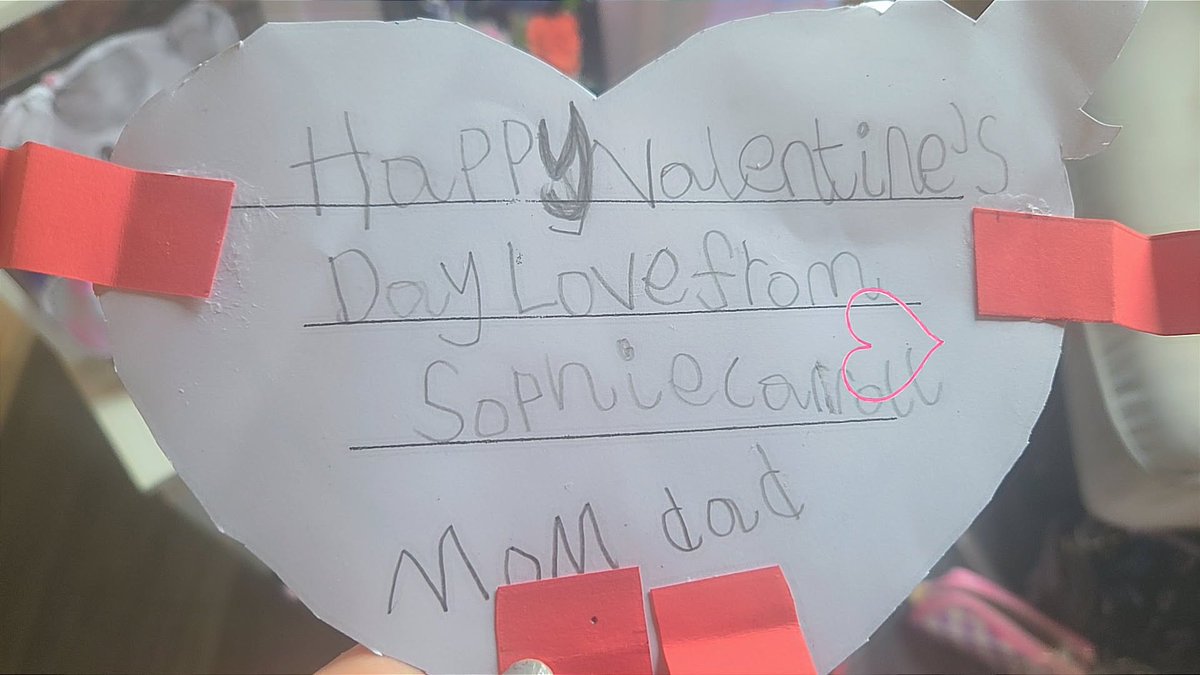 Happy Valentine's
Day Love from
Sophie Carroll
Mom dad